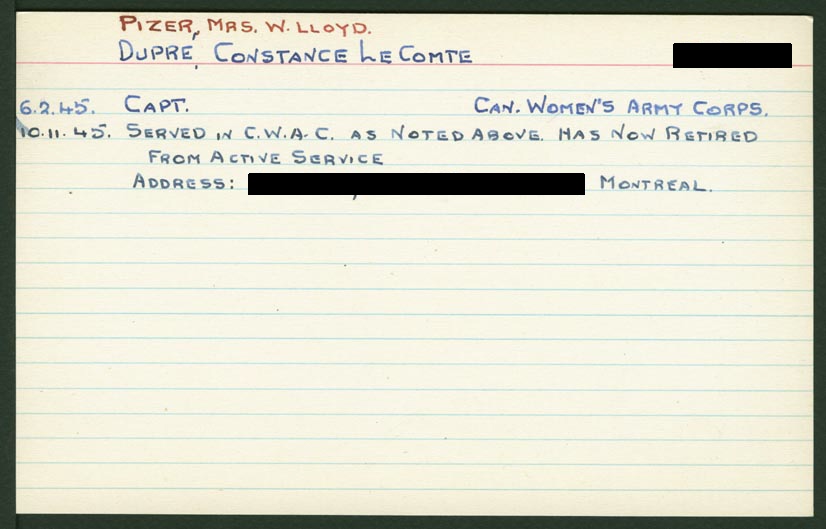 PIZER, MRS. W. LLOYD.
DUPRE, CONSTANCE LE COMTE
6.2.45. CAPT. CAN. WOMEN'S ARMY CORPS.
10.11.45. SERVED IN C.W.A.C. AS NOTED ABOVE. HAS NOW RETIRED
FROM ACTIVE SERVICE
ADDRESS: MONTREAL.